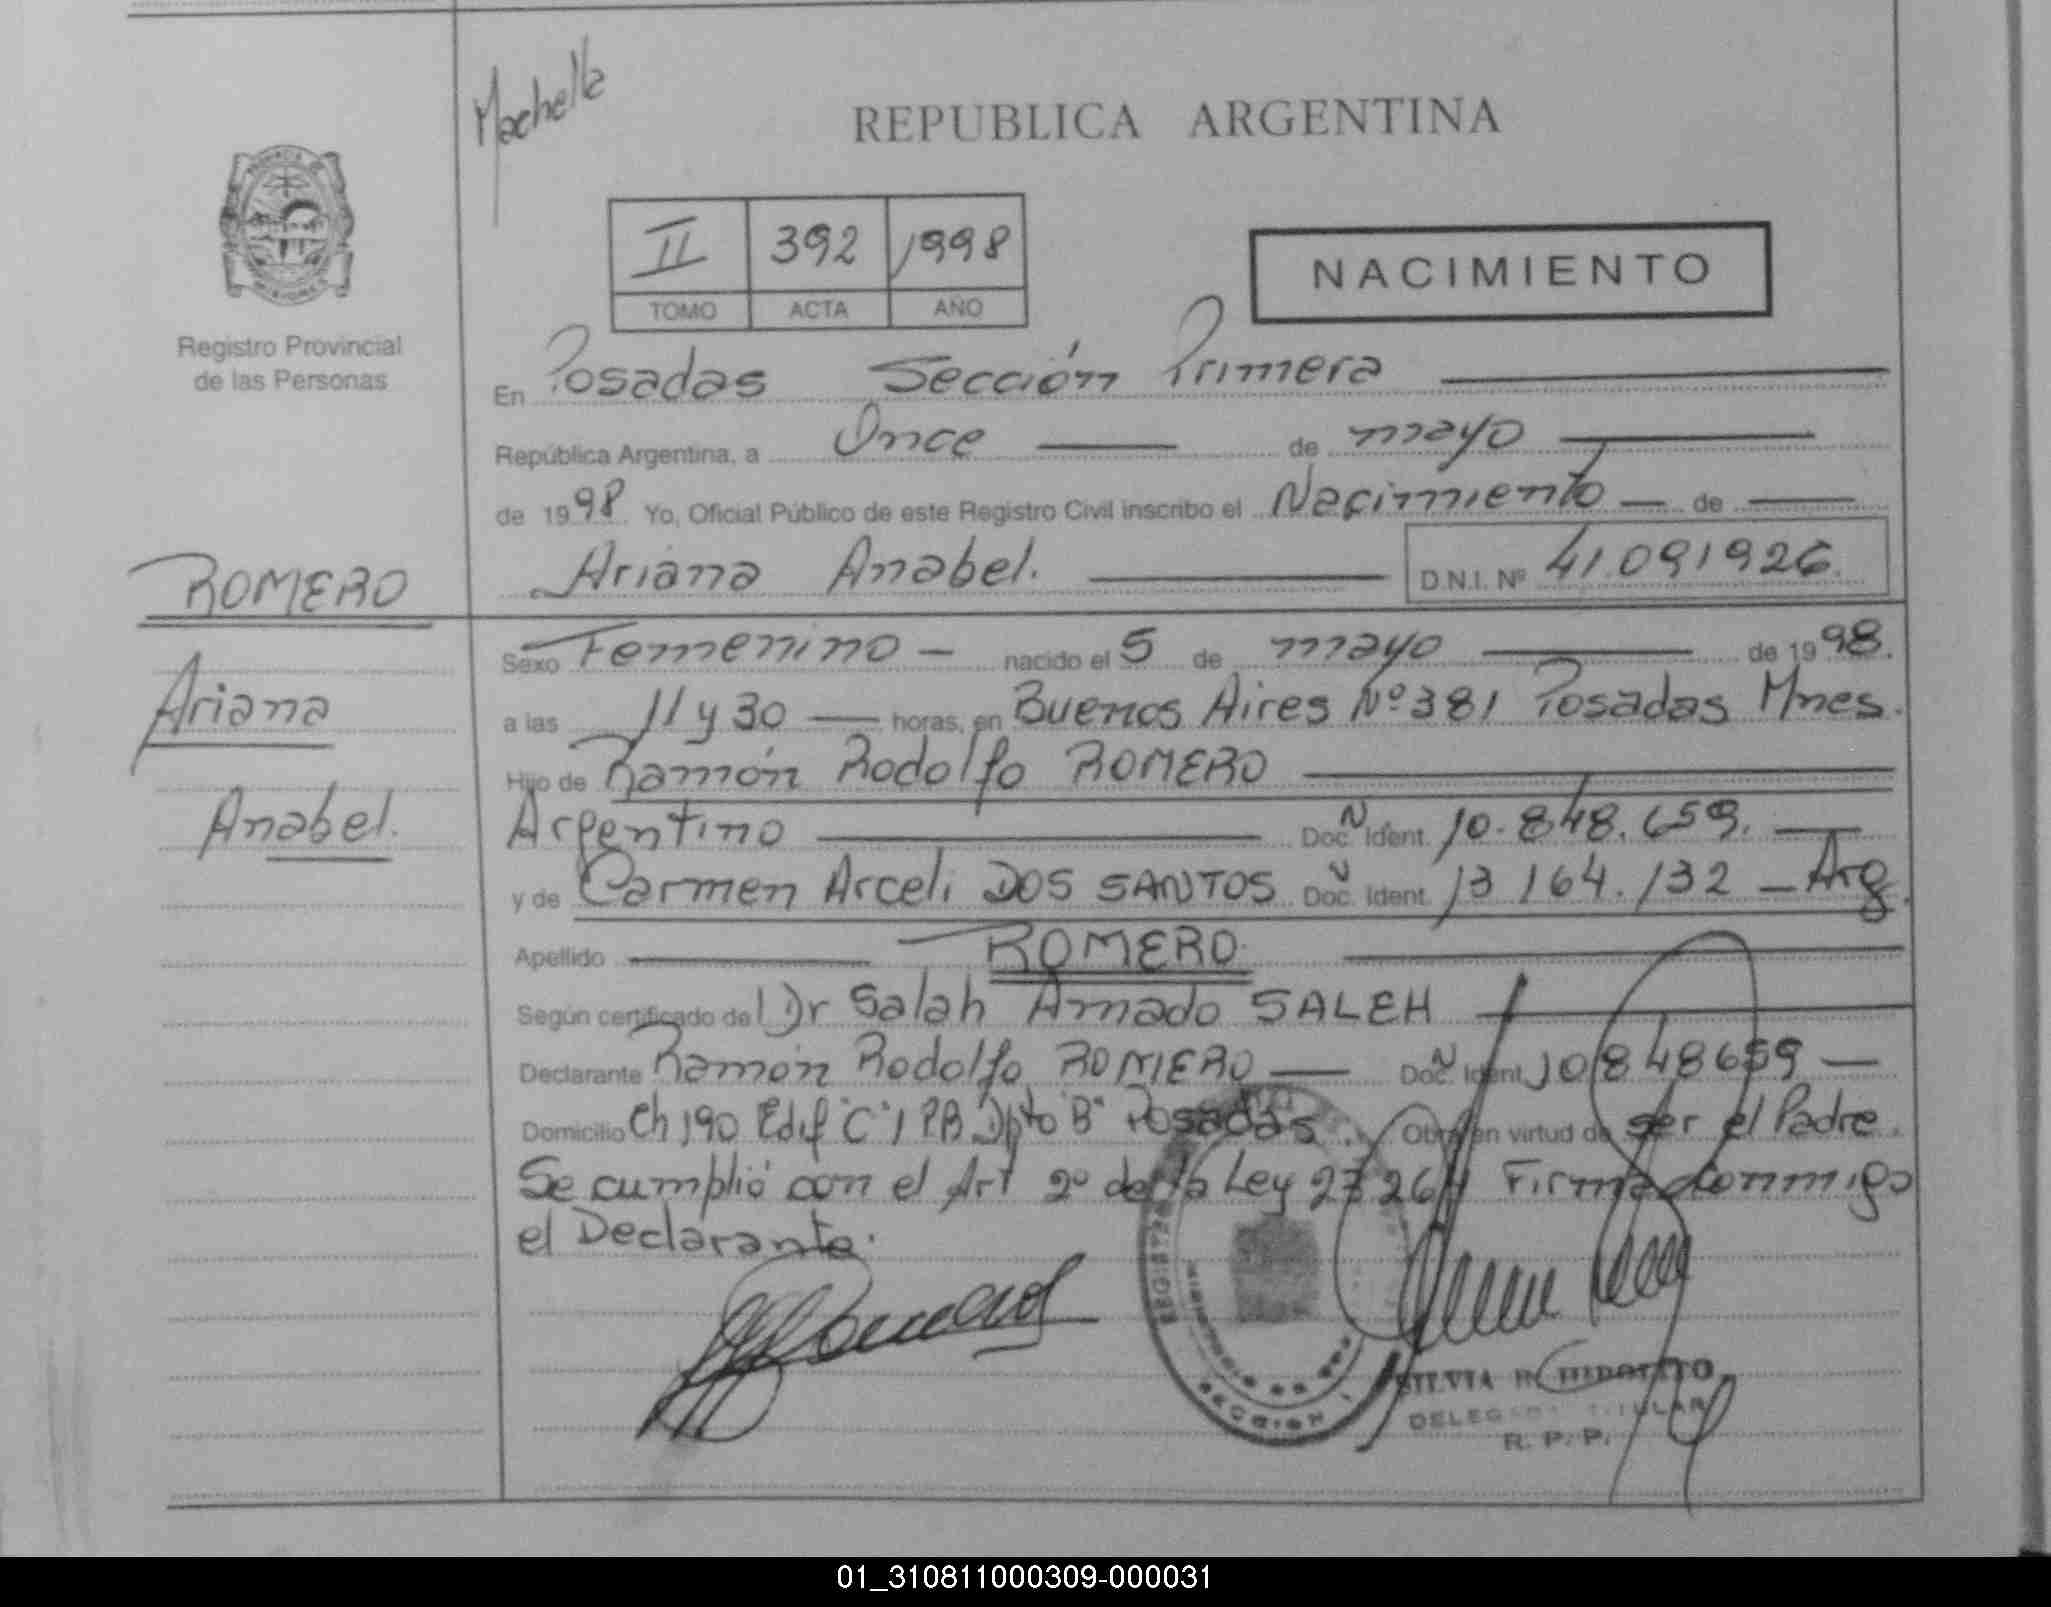 Machella
REPUBLICA ARGENTINA
II 392 1998
TOMO ACTA AÑO
NACIMIENTO
Registro Provincial
de las Personas
En Posadas Sección Primera
República Argentina, a Once de mayo
de 1998 Yo, Oficial Público de este Registro Civil inscribo el Nacimiento de
Ariana Anabel. D.N.I. Nº 41.091926.
ROMERO
Ariana
Anabel.
Sexo Femenino nacido el 5 de mayo de 1998.
a las 11 y 30 horas, en Buenos Aires Nº 381 Posadas Mnes.
Hijo de Ramón Rodolfo ROMERO
Argentino Doc. N Ident. 10.848.659.
y de Carmen Arceli DOS SANTOS Doc. N Ident. 13 164.132 Arg.
Apellido ROMERO
Según certificado de Dr Salah Amado SALEH
Declarante Ramón Rodolfo ROMERO Doc. N Ident. 10848659
Domicilio Ch 190 Edif "C" 1 PB Dpto "B" Posadas. Obra en virtud de ser el Padre.
Se cumplió con el Art 2º de la Ley Firma conmigo
el Declarante.
SECCION
SILVIA
DELEGADA TITULAR
R. P. P.
01_310811000309-000031